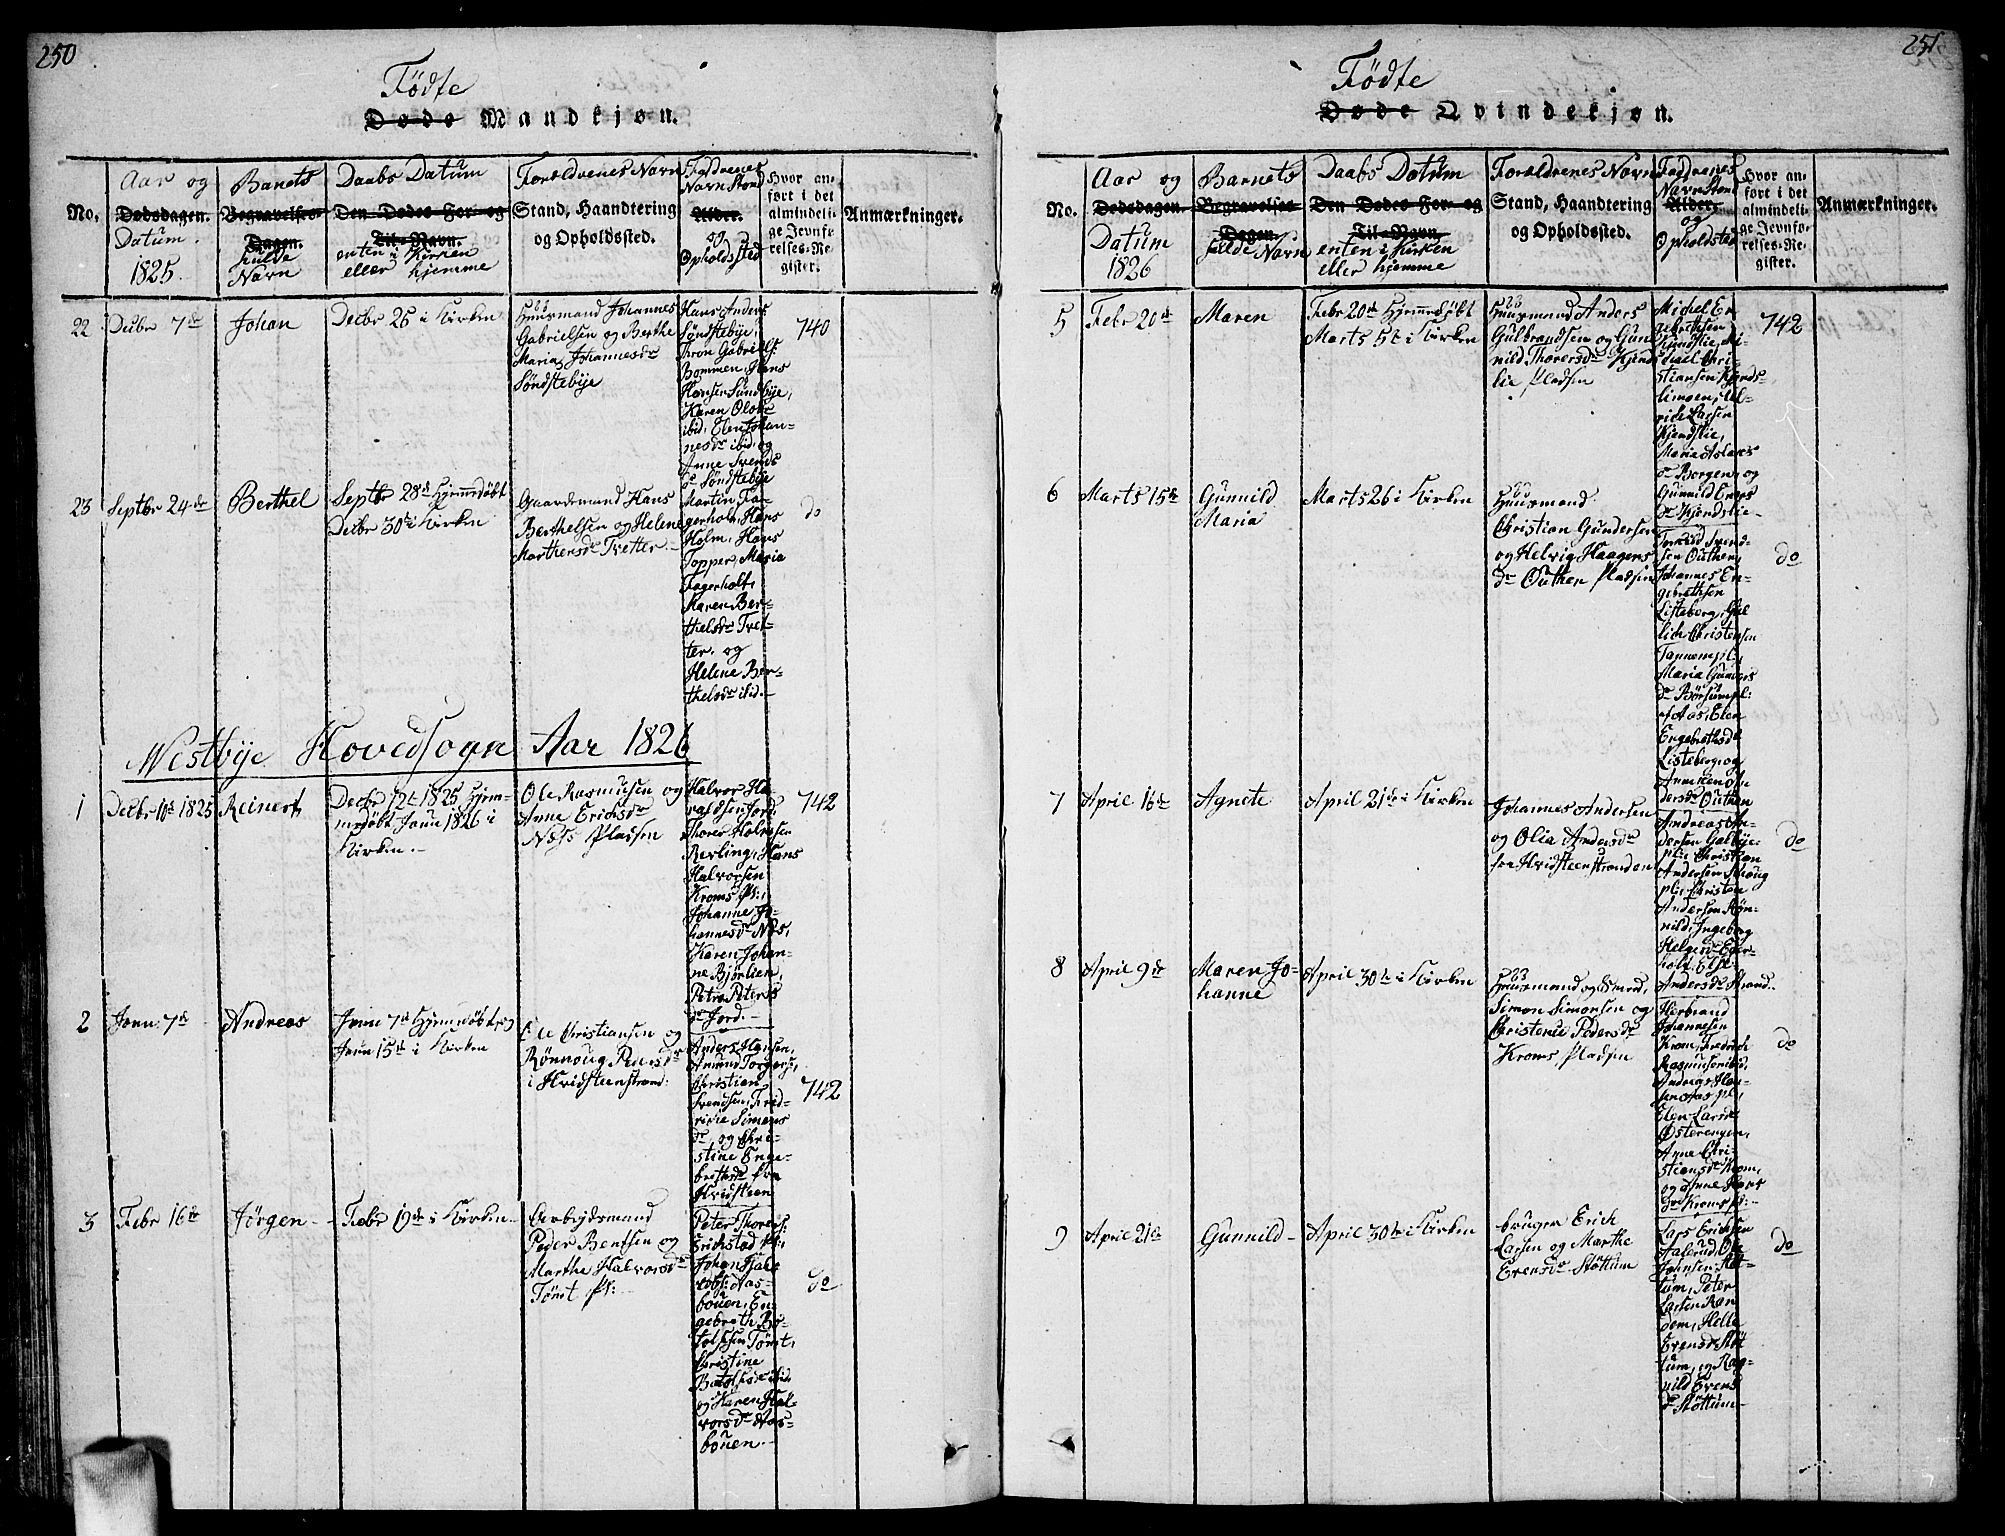 250
Födte
Døde Mandkjøn.
No.
Aar og
Dødsdagen.
Datum.
1825.
Barnets
Begravelses-
Dagen.
fulde
Navn
Daabs Datum
Den Dødes For- og
Til-Navn.
enten i Kirken
eller hjemme
Forældrenes Navn
Stand, Haandtering
og Opholdssted.
Faddrenes
Navn Stand
Alder.
og
Opholdsted
Hvor an-
ført i det
almindeli-
ge Jevnfø-
relses-Re-
gister.
Anmærkninger.
22
Decbr 7de
Johan
Decbr 26 i Kirken
Huusmand Johannes
Gabrielsen og Berthe
Maria Johannesdr
Söndstebye
Hans Anders
Söndstebye,
Tron Gabriels:
Bommen, Hans
Hansen Sundbye,
Karen Olsdr
ibid, Elen Johan-
nesdr ibid. og
Anne Svends
dr Söndstebye
740
23
Septbr 24de
Berthel
Septbr 28de Hjemmedöbt
Decbr 30te i Kirken
Gaardmand Hans
Berthelsen og Helene
Marthensdr Tvetter.-
Martin Fa-
gerholt, Hans
Holm, Hans
Topper, Maria
Fagerholt,
Karen Ber-
thelsdr Tvet-
ter. og
Helene Ber-
thelsdr ibid.-
do
Westbye Hovedsogn Aar 1826
1
Decbr 10de 1825
Reinert
Decbr 12te 1825 Hjem-
medöbt Janu 1826 i
Kirken.-
Ole Rasmusen og
Anne Erichsdr
Næss Pladsen
Halvor Ha-
valdsen Jord,
Thorer Holmsen
Revling, Hans
Halvorsen
Kroms Pl:,
Johanne Jo-
hannesdr Næs,
Karen Johan-
ne Bjørlien,
Petra Peters
dr Jord.-
742
2
Janu: 7de
Andreas
Janu 7de Hjemmedöbt og
Janu 15de i Kirken
Ole Christiansen og
Rönnoug Pedersdr
i Hvidsteenstrand:
Anders Hansen,
Amund Torgers:,
Christian
Svendsen, Fred-
rikke Simens
dr, og Chri-
stine Enge-
bretsdr fra
Hvidsteen
742
3
Febr 16de
Jörgen-
Febr 19de i Kirken
Arbejdsmand
Peder Bentsen og
Marthe Halvorsdr
Tömt Pl:
Peter Thorers:
Erichstad Pl:,
Johan Jak-
obs: Aas-
bouen, En-
gebreth Bo-
tolfsen Tömt,
Christine
Botolfsdr ibid.
og Karen Hal-
vorsdr Aas-
bouen.-
do
251
Födte
Døde Qvindekjøn.
No.
Aar og
Dødsdagen.
Datum
1826
Barnets
Begravelses-
Dagen.
fulde Navn
Daabs Datum
Den Dødes For- og
Til-Navn.
enten i Kirken
eller hjemme
Forældrenes Navn
Stand, Haandtering
og Opholdssted.
Faddrenes
Navn Stand
Alder.
og
Opholdsted
Hvor an-
ført i det
almindeli-
ge Jevnfø-
relses-Re-
gister.
Anmærkninger.
5
Febr 20de
Maren
Febr 20de Hjemmedöbt
Marts 5te i Kirken
Huusmand Anders
Gulbrandsen og Gun-
nild Thorersdr Kjends-
lie Pladsen
Michel En-
gebrethsen
Kjendslie, Mi-
chael Chri-
stiansen Kjends-
limoen, Ul-
rich Larsen
Kjendslie,
Maria Aslacs
dr Borgen, og
Gunnild Evers
dr Kjendslie
742
6
Marts 15de
Gunnild
Maria
Marts 26 i Kirken
Huusmand
Christian Gundersen
og Helvig Haagens
dr Outhen Pladsen
Torkild Svend-
sen Outhen,
Johannes En-
gebrethsen
Listeberg, Gul-
lich Christensen
Tannumpl.,
Maria Gunders
dr Börsumpl:
af Aas, Elen
Engebrethsdr
Listeberg, og
Anneken An-
dersdr Outhen
do
7
April 16de
Agnete
April 21de i Kirken
Johannes Andersen
og Olia Andersdr
fra Hvidsteenstranden
Andreas An-
dersen Galbye-
pl:, Christian
Andersen Schoug
pl:, Christen
Andersen Rön-
nild, Ingeborg
Helgendr Eger-
holt, Else
Andersdr Strand.
do
8
April 9de
Maren Jo-
hanne
April 30te i Kirken
Huusmand og Smed,
Simon Simonsen og
Christense Pedersdr
Kroms Pladsen
Herbrand
Johannesen
Krom, Fredrich
Rasmusen ibid,
Andreas Han-
sen Aas pl:,
Elen Larsdr
Østerengen,
Anne Chri-
stiansdr Krom,
og Anne Hans
dr Kroms pl:
do
9
April 21de
Gunnild-
April 30te i Kirken
bruger Erich
Larsen og Marthe
Evensdr Støttum
Lars Erichsen
Aalerud, Ole
Johnsen Støt-
tum, Peter
Larsen Ran-
dem, Helle
Evensdr Støt-
tum, og Rag-
nild Evens
dr Støttum-
do